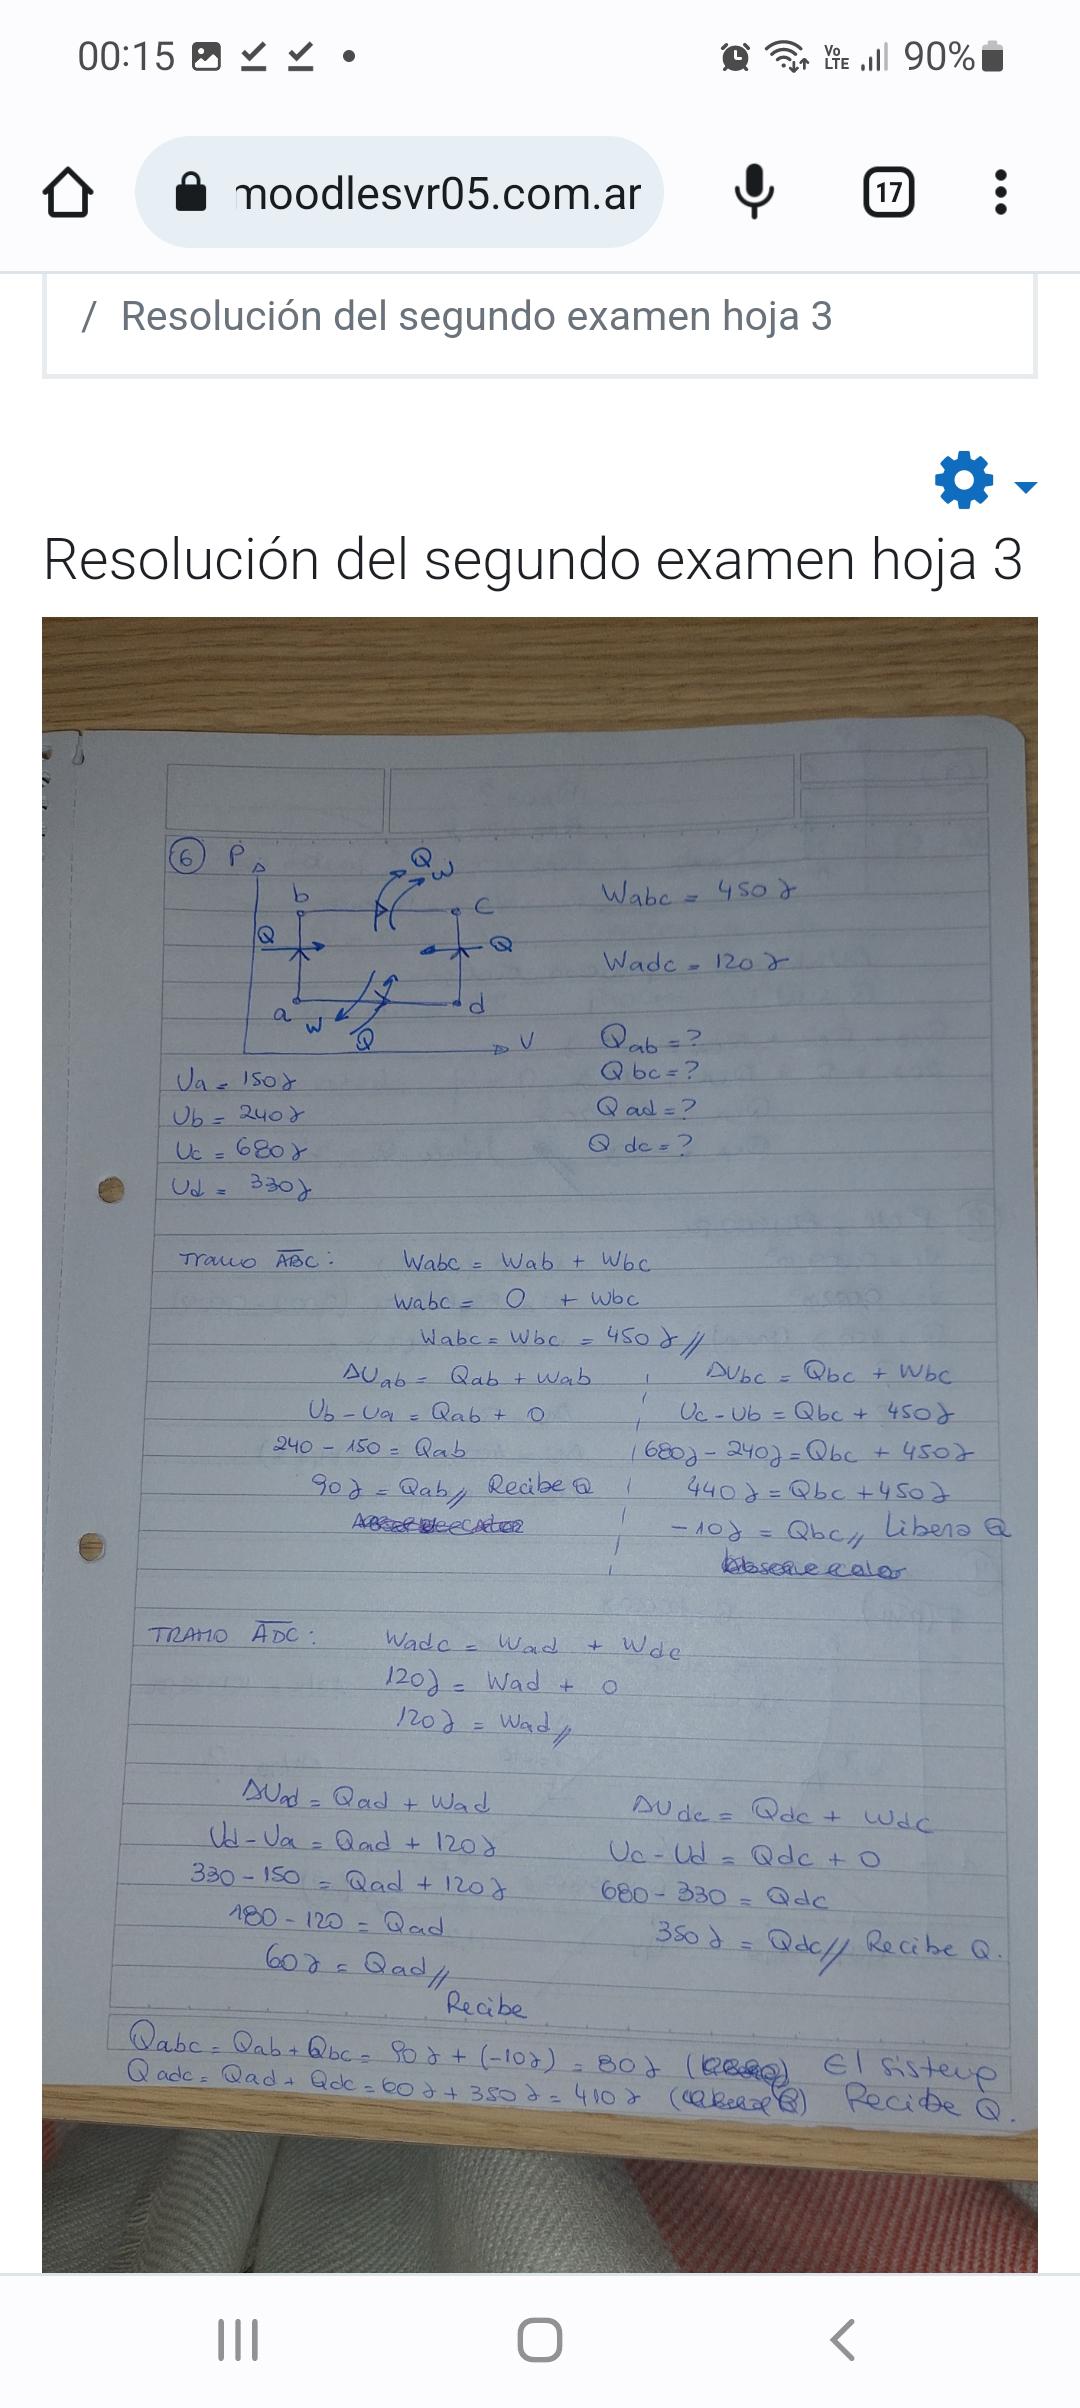 00:15 Vo LTE 90%
moodlesvr05.com.ar 17
/ Resolución del segundo examen hoja 3
Resolución del segundo examen hoja 3
6 P
b Q W c
Q Q
a W Q d
V
Wabc = 450 J
Wadc = 120 J
Qab = ?
Qbc = ?
Qad = ?
Qdc = ?
Ua = 150 J
Ub = 240 J
Uc = 680 J
Ud = 330 J
Tramo ABC: Wabc = Wab + Wbc
Wabc = 0 + Wbc
Wabc = Wbc = 450 J //
ΔUab = Qab + Wab
Ub - Ua = Qab + 0
240 - 150 = Qab
90 J = Qab // Recibe Q
ΔUbc = Qbc + Wbc
Uc - Ub = Qbc + 450 J
680 J - 240 J = Qbc + 450 J
440 J = Qbc + 450 J
-10 J = Qbc // Libera Q
TRAMO ADC: Wadc = Wad + Wdc
120 J = Wad + 0
120 J = Wad //
ΔUad = Qad + Wad
Ud - Ua = Qad + 120 J
330 - 150 = Qad + 120 J
180 - 120 = Qad
60 J = Qad //
Recibe
ΔUdc = Qdc + Wdc
Uc - Ud = Qdc + 0
680 - 330 = Qdc
350 J = Qdc // Recibe Q.
Qabc = Qab + Qbc = 90 J + (-10 J) = 80 J ( ) El sistema
Qadc = Qad + Qdc = 60 J + 350 J = 410 J ( ) Recibe Q.